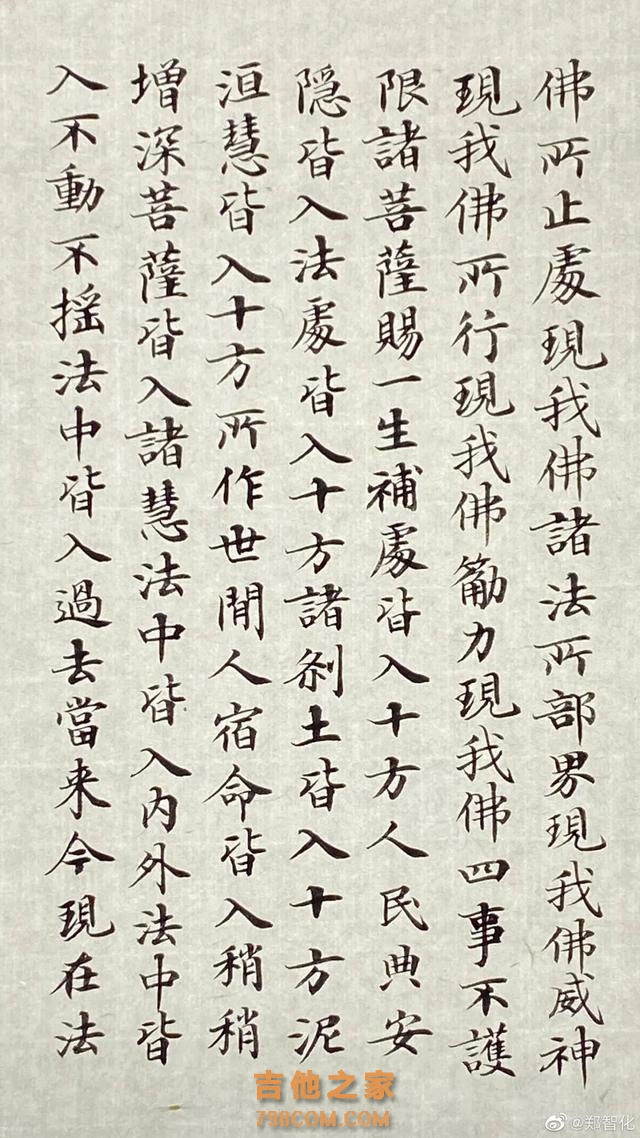 佛所止處現我佛諸法所部界現我佛威神
現我佛所行現我佛所行現我佛筋力現我佛四事不護
限諸菩薩賜一生補處皆入十方人民典安
隱皆入法處皆入十方諸剎土皆入十方泥
洹慧皆入十方所作世間人宿命皆入稍稍
增深菩薩皆入諸慧法中皆入內外法中皆
入不動不搖法中皆入過去當来今現在法
吉他之家
798COM.COM
@郑智化